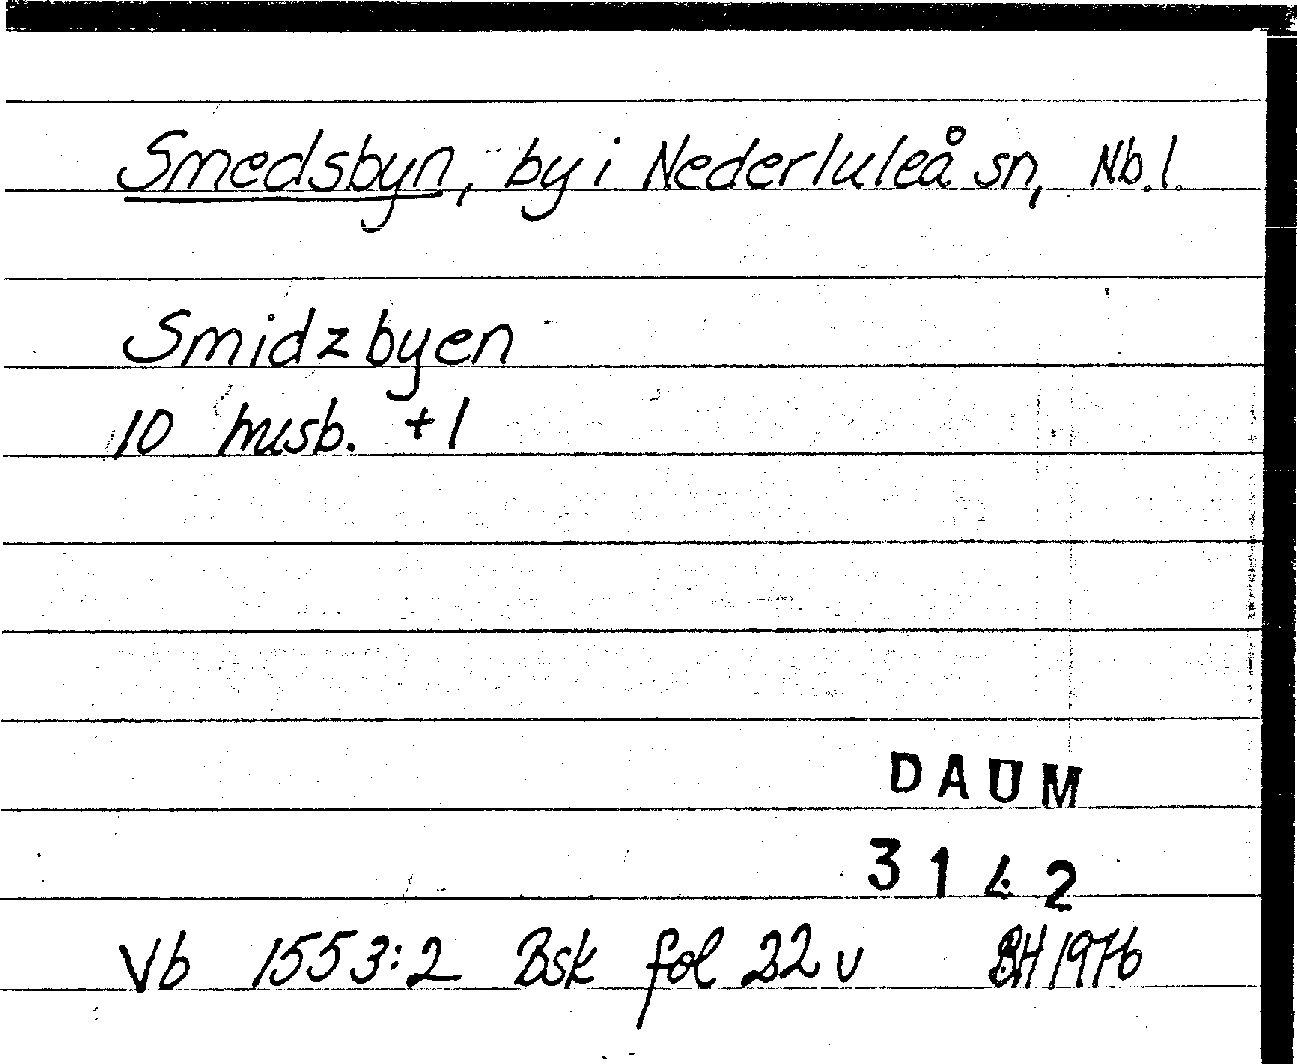 Smedsbyn, by i Nederluleå sn, Nb.l.
Smidzbyen
10 husb. +1
DAUM
3142
Vb 1553:2 Bsk fol 22 v BH 1976